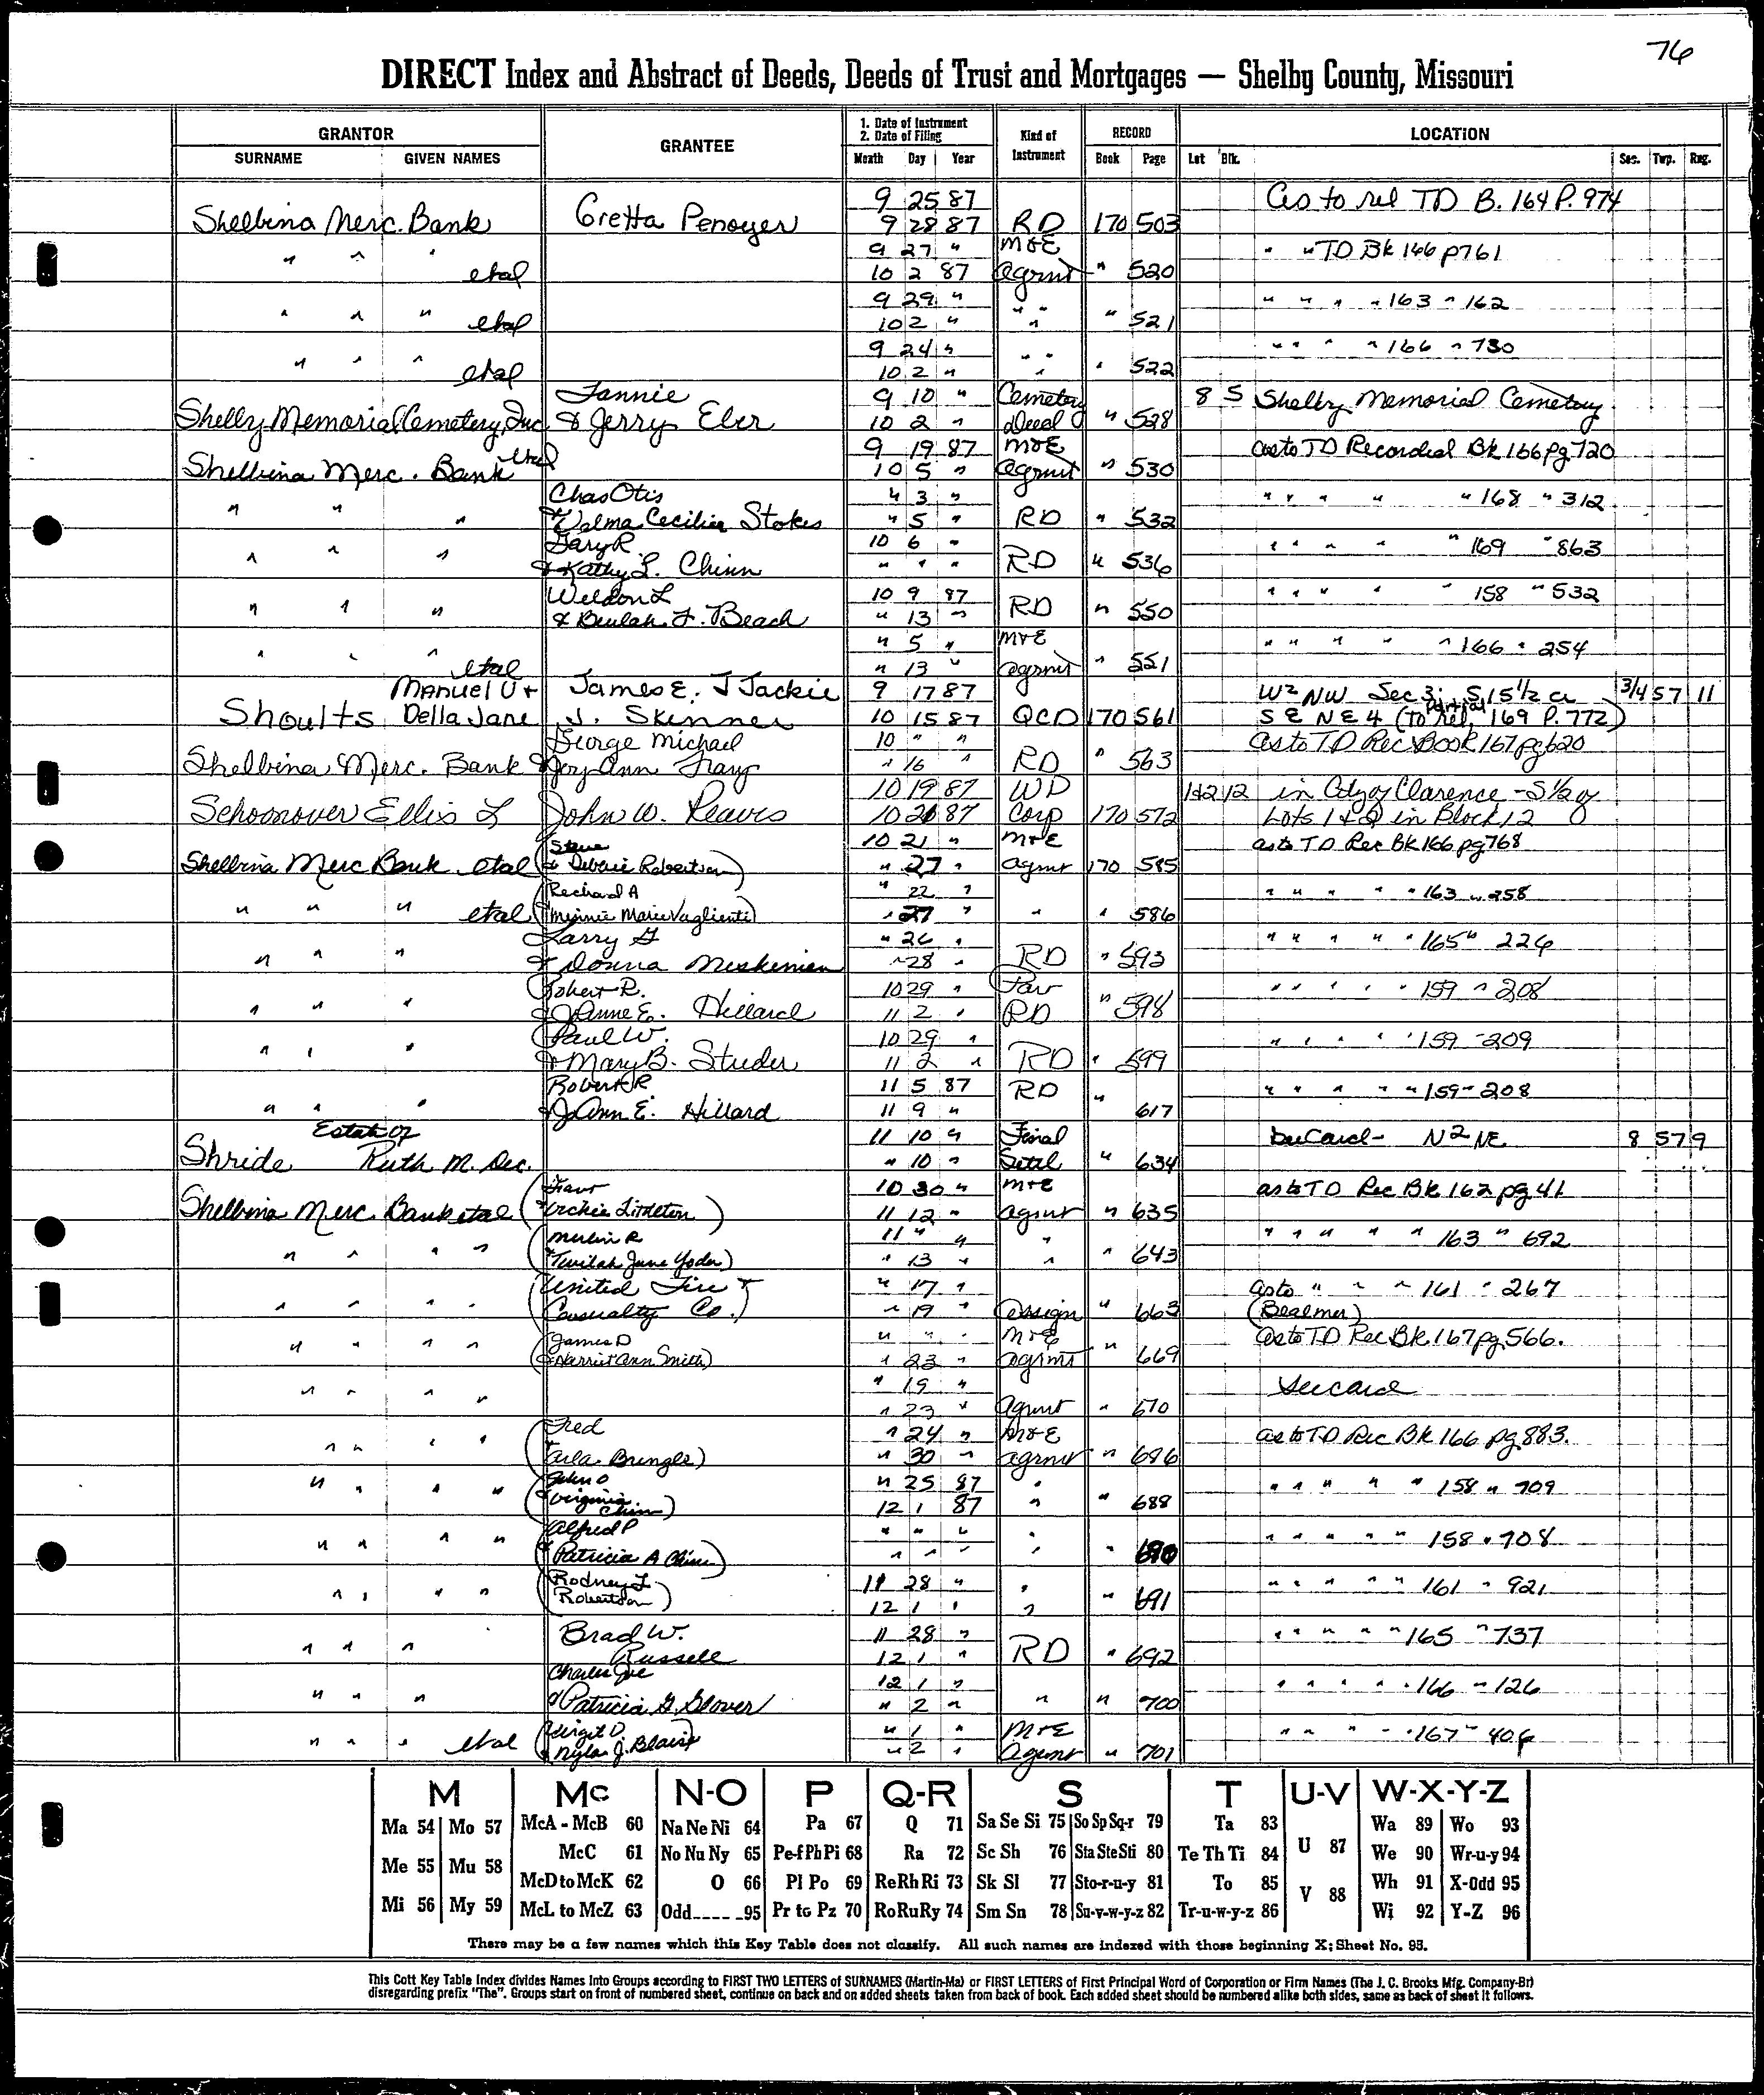 76
DIRECT Index and Abstract of Deeds, Deeds of Trust and Mortgages — Shelby County, Missouri
GRANTOR GRANTEE 1. Date of Instrument 2. Date of Filing Kind of Instrument RECORD LOCATION
SURNAME GIVEN NAMES Month Day Year Book Page Lot Blk. Sec. Twp. Rng.
9 25 87 As to rel TD B. 164 P. 974
Shelbina Merc. Bank Gretta Penoyer 9 28 87 RD 170 503
" " " 9 27 " M+E " " TD Bk 146 p761
etal 10 2 87 Agrmt " 520
" " " 9 29 " " " " " " " 163 " 162
etal 10 2 " " " 521
" " " 9 24 " " " " " " " 166 " 730
etal 10 2 " " " 522
Fannie 9 10 " Cemetery 8 5 Shelby Memorial Cemetery
Shelby Memorial Cemetery, Inc & Jerry Eler 10 2 " Deed " 528
etal 9 19 87 M+E as to TD Recorded Bk 166 pg 720
Shelbina Merc. Bank 10 5 " Agrmt " 530
Chas Otis " 3 " " " " " " 168 " 312
" " " + Velma Cecilia Stokes " 5 " RD " 532
Gary R. 10 6 " " " " " " 169 " 863
" " " & Kathy L. Chinn " " " RD " 536
Weldon L 10 9 87 " " " " " 158 " 532
" " " & Beulah F. Beach " 13 " RD " 550
" " " " 5 " M+E " " " " " 166 " 254
etal " 13 " Agrmt " 551
Manuel U + James E. J Jackie 9 17 87 W2 NW Sec 3; S 15 1/2 a 3/4 57 11
Shoults Della Jane J. Skinner 10 15 87 QCD 170 561 SE NE 4 (to partial rel, 169 P. 772)
George Michael 10 " " As to TD Rec Book 167 pg 620
Shelbina Merc. Bank " 16 " RD " 563
10 19 87 WD 1&2 12 in City of Clarence - S 1/2 of
Schoonover Ellis L John W. Reavis 10 20 87 Corp 170 572 Lots 1 & 2 in Block 12
Steve 10 21 " M+E as to TD Rec Bk 166 pg 768
Shelbina Merc Bank etal (& Debbie Robertson) " 27 " Agmt 170 585
(Richard A " 22 " " " " " " 163 " 258
" " " etal Minnie Marie Vaglienti) " 27 " " " 586
Larry G " 26 " " " " " " 165 " 226
" " " & Donna Meskimen " 28 " RD " 593
Robert R. 10 29 " Par " " " " " 159 " 208
" " " & JoAnne E. Hillard 11 2 " RD " 598
Paul W. 10 29 " " " " " " 159 " 209
" " " & Mary B. Studer 11 2 " RD " 599
Robert R 11 5 87 RD " " " " " 159 " 208
" " " & JoAnn E. Hillard 11 9 " " 617
Estate of 11 10 " Final See Card - N2 NE 8 57 9
Shride Ruth M. Dec. " 10 " Setel " 634
10 30 " M+E as to TD Rec Bk 162 pg 41
Shelbina Merc. Bank etal ( Archie Littleton ) 11 12 " Agmt " 635
(Merlin R 11 " " " " " " " " 163 " 692
" " " " & Twilah June Yoder) " 13 " " " 643
(United Fire & " 17 " as to " " " 161 " 267
" " " " Casualty Co.) " 19 " Assign " 663 (Bealmer)
(James D " " " M+E As to TD Rec Bk. 167 pg 566.
" " " " & Harriet Ann Smith) " 23 " Agrmt " 669
" " " " " 19 " See card
" 23 " Agmt " 670
(Fred " 24 " M+E as to TD Rec Bk 166 pg 883.
" " " " Arla Bringle) " 30 " Agrmt " 676
(John O " 25 87 " " " " " " 158 " 709
" " " " & Virginia Chinn) 12 1 87 " " 688
(Alfred P " " " " " " " " 158 " 708
" " " " & Patricia A Chinn) " " " " " 690
(Rodney L 11 28 " " " " " " " 161 " 921
" " " " Robertson) 12 1 " " " 691
Brad W. 11 28 " " " " " " 165 " 737
" " " Russell 12 1 " RD " 692
Charles Joe 12 1 " " " " " " 166 " 126
" " " & Patricia G. Glover " 2 " " " 700
(Virgil D. " 1 " M+E " " " " " 167 " 406
" " " etal & Nyla J. Blaise) " 2 " Agrmt " 701
M Mc N-O P Q-R S T U-V W-X-Y-Z
Ma 54 Mo 57 McA - McB 60 Na Ne Ni 64 Pa 67 Q 71 Sa Se Si 75 So Sp Sq-r 79 Ta 83 U 87 Wa 89 Wo 93
Me 55 Mu 58 McC 61 No Nu Ny 65 Pe-f Ph Pi 68 Ra 72 Sc Sh 76 Sta Ste Sti 80 Te Th Ti 84 V 88 We 90 Wr-u-y 94
Mi 56 My 59 McD to McK 62 O 66 Pl Po 69 Re Rh Ri 73 Sk Sl 77 Sto-r-u-y 81 To 85 Wh 91 X-Odd 95
McL to McZ 63 Odd---- -95 Pr to Pz 70 Ro Ru Ry 74 Sm Sn 78 Su-v-w-y-z 82 Tr-u-w-y-z 86 Wi 92 Y-Z 96
There may be a few names which this Key Table does not classify. All such names are indexed with those beginning X; Sheet No. 95.
This Cott Key Table Index divides Names Into Groups according to FIRST TWO LETTERS of SURNAMES (Martin-Ma) or FIRST LETTERS of First Principal Word of Corporation or Firm Names (The J. C. Brooks Mfg. Company-Br)
disregarding prefix "The". Groups start on front of numbered sheet, continue on back and on added sheets taken from back of book. Each added sheet should be numbered alike both sides, same as back of sheet it follows.